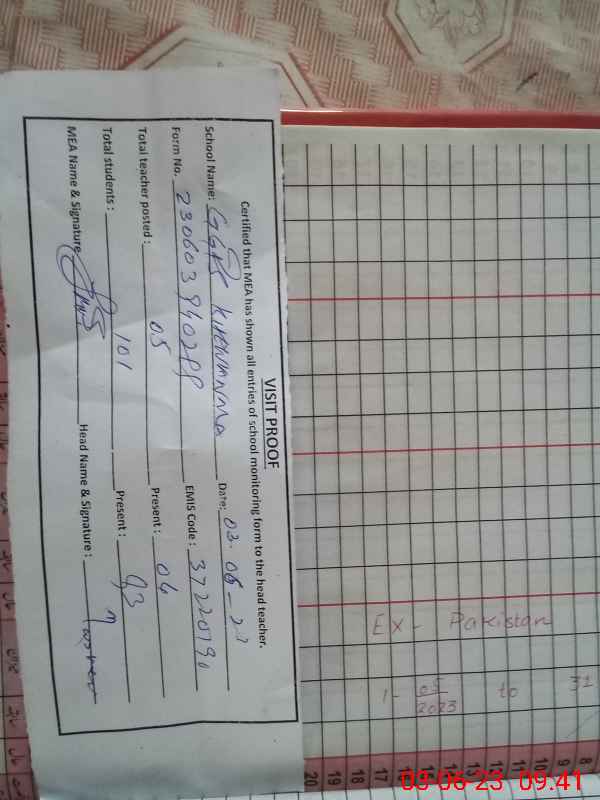 VISIT PROOF
Certified that MEA has shown all entries of school monitoring form to the head teacher.
School Name: GGPS Date: 03-06-23
Form No. EMIS Code: 37220190
Total teacher posted: 05 Present: 04
Total students: 101 Present: 93
MEA Name & Signature Head Name & Signature:
Ex- Pakistan
1- 05/2023 to 31
20 19 18 17 16 15 14 13 12 11 10 9 8
03-06-23 09:41